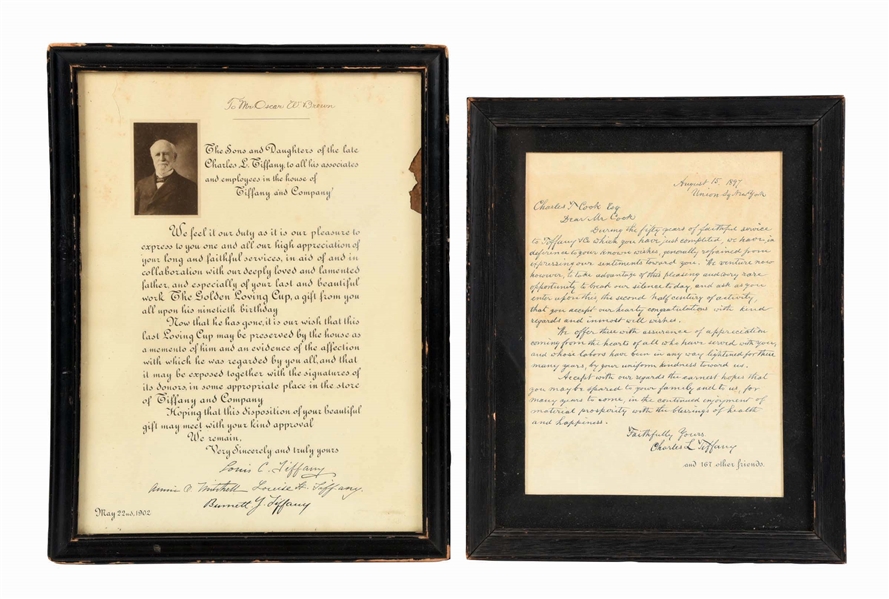 To Mr. Oscar W. Brown
The Sons and Daughters of the late
Charles L. Tiffany, to all his associates
and employees in the house of
Tiffany and Company
We feel it our duty as it is our pleasure to
express to you one and all our high appreciation of
your long and faithful services, in aid of and in
collaboration with our deeply loved and lamented
father, and especially of your last and beautiful
work The Golden Loving Cup, a gift from you
all upon his ninetieth birthday
Now that he has gone, it is our wish that this
last Loving Cup may be preserved by the house as
a memento of him and an evidence of the affection
with which he was regarded by you all, and that
it may be exposed together with the signatures of
its donors, in some appropriate place in the store
of Tiffany and Company
Hoping that this disposition of your beautiful
gift may meet with your kind approval
We remain,
Very Sincerely and truly yours
Louis C. Tiffany
Annie O. Mitchell Louise H. Tiffany.
Burnett Y. Tiffany
May 22nd, 1902
August 15, 1897
Union Sq. New York
Charles T. Cook Esq
Dear Mr Cook
During the fifty years of faithful service
to Tiffany & Co which you have just completed, we have, in
deference to your known wishes, generally refrained from
expressing our sentiments toward you. We venture now
however, to take advantage of this pleasing and very rare
opportunity to break our silence today, and ask as you
enter upon this, the second half century of activity,
that you accept our hearty congratulations with kind
regards and inmost well wishes.
We offer these with assurance of appreciation
coming from the hearts of all who have served with you,
and whose labors have been in any way lightened for these
many years, by your uniform kindness toward us.
Accept with our regards the earnest hopes that
you may be spared to your family and to us, for
many years to come, in the continued enjoyment of
material prosperity with the blessings of health
and happiness.
Faithfully Yours
Charles L. Tiffany
and 167 other friends.